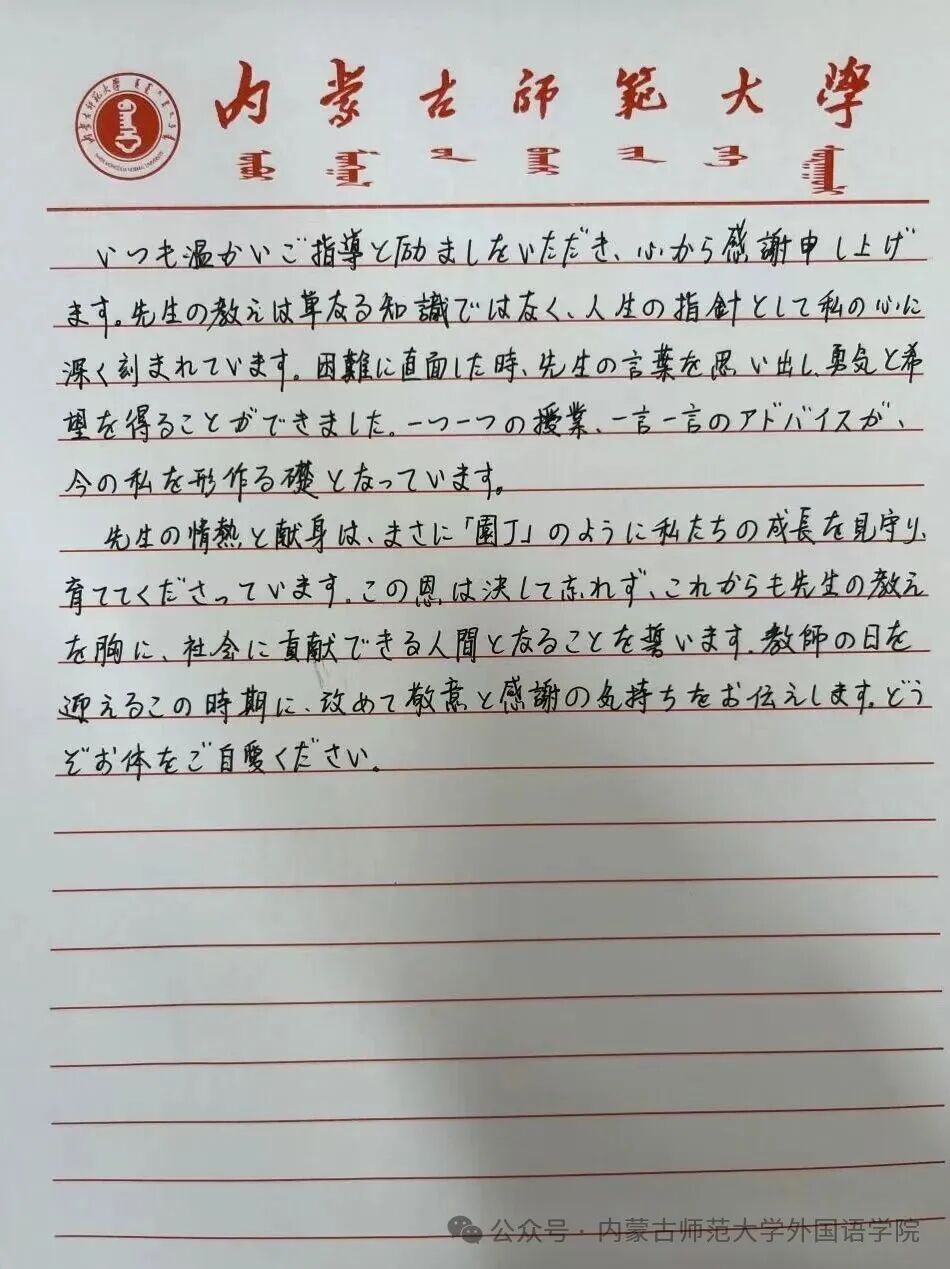 内蒙古師範大學
いつも温かいご指導と励ましをいただき、心から感謝申し上げ
ます。先生の教えは単なる知識ではなく、人生の指針として私の心に
深く刻まれています。困難に直面した時、先生の言葉を思い出し、勇気と希
望を得ることができました。一つ一つの授業、一言一言のアドバイスが、
今の私を形作る礎となっています。
先生の情熱と献身は、まさに「園丁」のように私たちの成長を見守り、
育ててくださっています。この恩は決して忘れず、これからも先生の教え
を胸に、社会に貢献できる人間となることを誓います。教師の日を
迎えるこの時期に、改めて敬意と感謝の気持ちをお伝えします。どう
ぞお体をご自愛ください。
公众号·内蒙古师范大学外国语学院